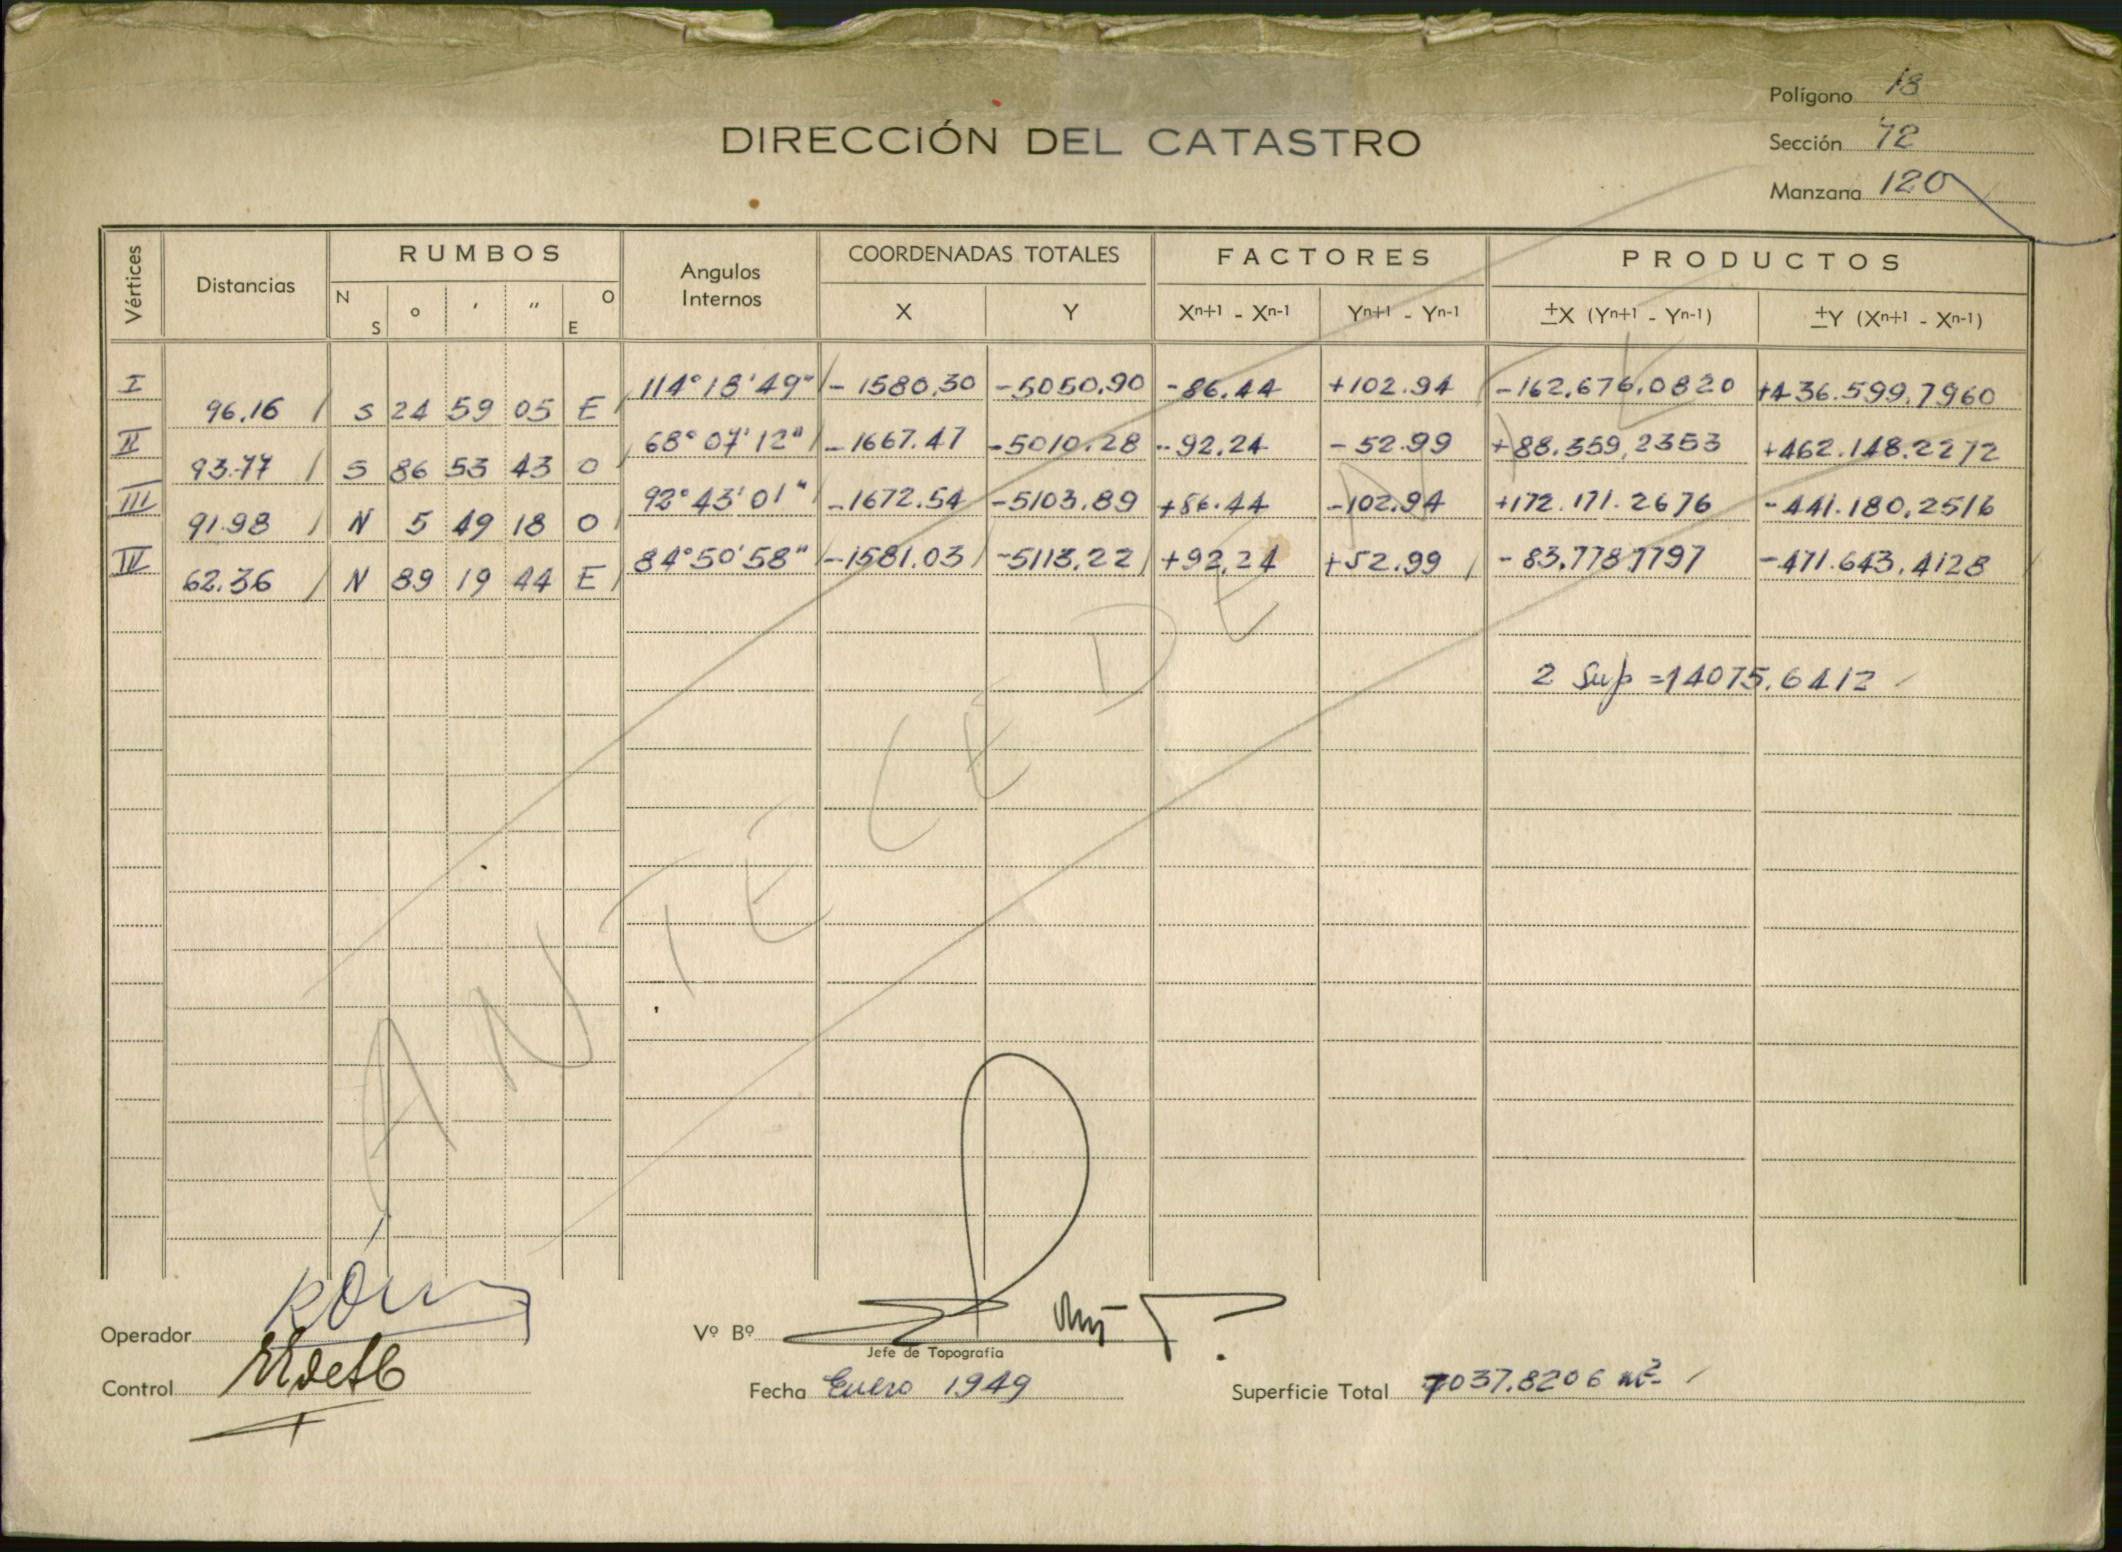 Polígono 18
DIRECCIÓN DEL CATASTRO
Sección 72
Manzana 120
Vértices Distancias RUMBOS Angulos Internos COORDENADAS TOTALES FACTORES PRODUCTOS
N S ° ' " O E X Y Xn+1 - Xn-1 Yn+1 - Yn-1 ±X (Yn+1 - Yn-1) ±Y (Xn+1 - Xn-1)
I 114°18'49" -1580,30 -5050,90 -86,44 +102.94 -162.676,0820 +436.599,7960
96,16 S 24 59 05 E
II 68°07'12" -1667.47 -5010.28 -92,24 -52.99 +88.359,2353 +462.148.2272
93.77 S 86 53 43 O
III 92°43'01" -1672.54 -5103,89 +86.44 -102.94 +172.171.2676 -441.180,2516
91.98 N 5 49 18 O
IV 84°50'58" -1581.03 -5113,22 +92,24 +52.99 -83.778,7797 -471.643,4128
62.36 N 89 19 44 E
2 Sup = 14075,6412
ANTECEDENTE
Operador
Control
Vº Bº
Jefe de Topografía
Fecha Enero 1949
Superficie Total 7037.8206 m²